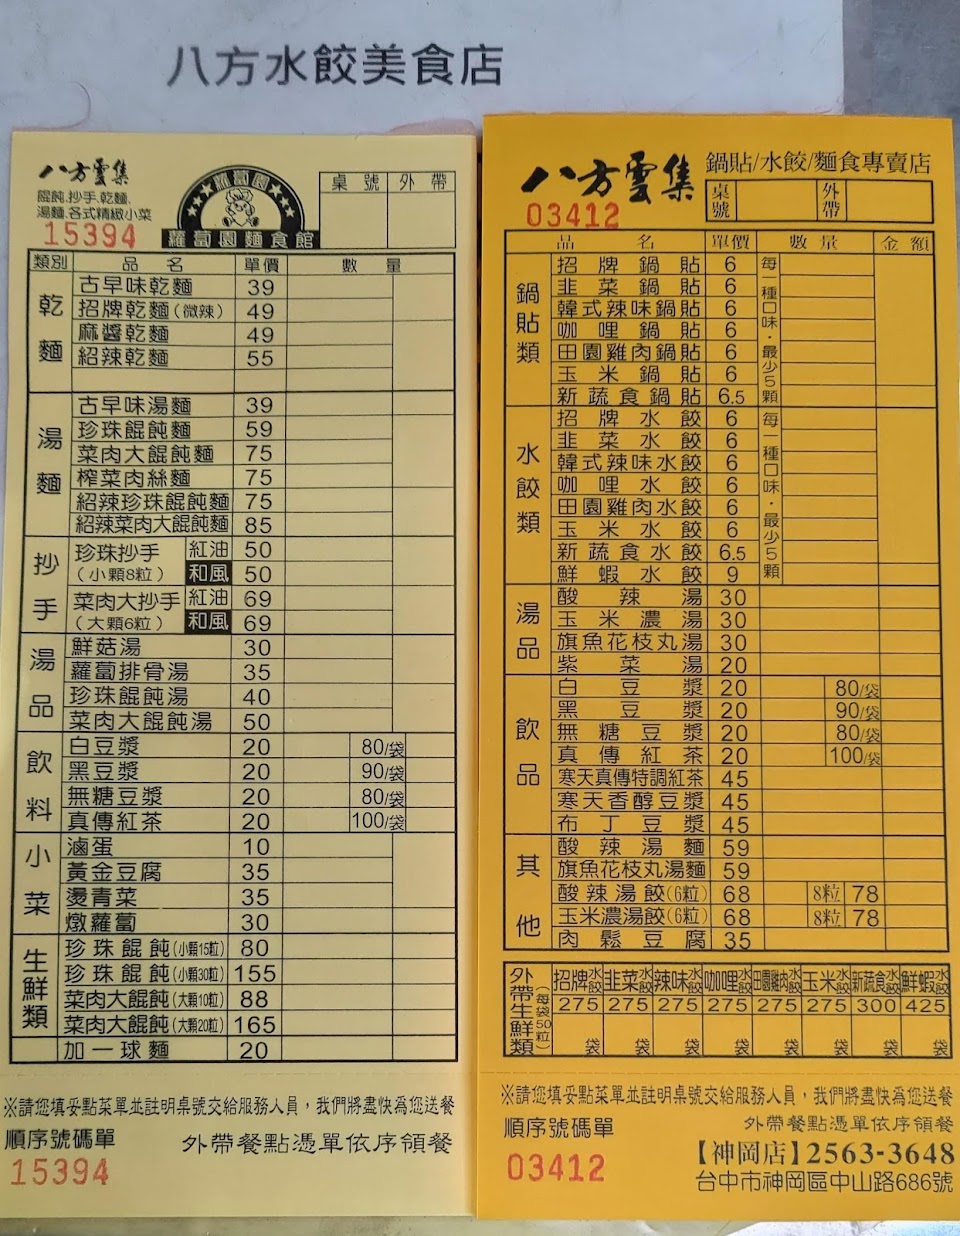 八方水餃美食店
八方雲集
餛飩.抄手.乾麵.
湯麵.各式精緻小菜
15394
蘿蔔園
蘿蔔園麵食館
桌號 外帶
類別 品名 單價 數量
乾麵
古早味乾麵 39
招牌乾麵(微辣) 49
麻醬乾麵 49
紹辣乾麵 55
湯麵
古早味湯麵 39
珍珠餛飩麵 59
菜肉大餛飩麵 75
榨菜肉絲麵 75
紹辣珍珠餛飩麵 75
紹辣菜肉大餛飩麵 85
抄手
珍珠抄手 紅油 50
(小顆8粒) 和風 50
菜肉大抄手 紅油 69
(大顆6粒) 和風 69
湯品
鮮菇湯 30
蘿蔔排骨湯 35
珍珠餛飩湯 40
菜肉大餛飩湯 50
飲料
白豆漿 20 80/袋
黑豆漿 20 90/袋
無糖豆漿 20 80/袋
真傳紅茶 20 100/袋
小菜
滷蛋 10
黃金豆腐 35
燙青菜 35
燉蘿蔔 30
生鮮類
珍珠餛飩(小顆15粒) 80
珍珠餛飩(小顆30粒) 155
菜肉大餛飩(大顆10粒) 88
菜肉大餛飩(大顆20粒) 165
加一球麵 20
※請您填妥點菜單並註明桌號交給服務人員，我們將盡快為您送餐
順序號碼單 外帶餐點憑單依序領餐
15394
八方雲集 鍋貼/水餃/麵食專賣店
03412
桌號 外帶
品名 單價 數量 金額
鍋貼類
招牌鍋貼 6
韭菜鍋貼 6
韓式辣味鍋貼 6
咖哩鍋貼 6
田園雞肉鍋貼 6
玉米鍋貼 6
新蔬食鍋貼 6.5
每一種口味．最少5顆
水餃類
招牌水餃 6
韭菜水餃 6
韓式辣味水餃 6
咖哩水餃 6
田園雞肉水餃 6
玉米水餃 6
新蔬食水餃 6.5
鮮蝦水餃 9
每一種口味．最少5顆
湯品
酸辣湯 30
玉米濃湯 30
旗魚花枝丸湯 30
紫菜湯 20
飲品
白豆漿 20 80/袋
黑豆漿 20 90/袋
無糖豆漿 20 80/袋
真傳紅茶 20 100/袋
寒天真傳特調紅茶 45
寒天香醇豆漿 45
布丁豆漿 45
其他
酸辣湯麵 59
旗魚花枝丸湯麵 59
酸辣湯餃(6粒) 68 8粒 78
玉米濃湯餃(6粒) 68 8粒 78
肉鬆豆腐 35
外帶生鮮類(每袋50粒)
招牌水餃 韭菜水餃 辣味水餃 咖哩水餃 田園雞肉水餃 玉米水餃 新蔬食水餃 鮮蝦水餃
275 275 275 275 275 275 300 425
袋 袋 袋 袋 袋 袋 袋 袋
※請您填妥點菜單並註明桌號交給服務人員，我們將盡快為您送餐
順序號碼單 外帶餐點憑單依序領餐
03412
【神岡店】2563-3648
台中市神岡區中山路686號